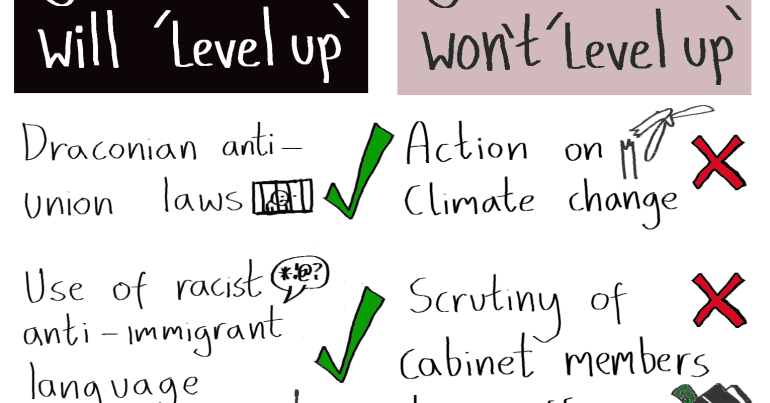 will 'Level up'
Draconian anti-
union laws
Use of racist *!@?
anti-immigrant
language
won't 'Level up'
Action on
Climate change
Scrutiny of
Cabinet members